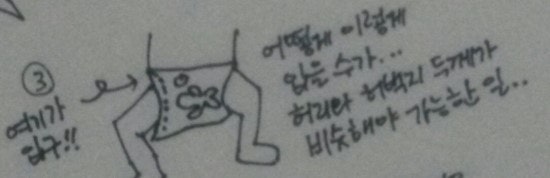 ③
여기가
입구!!
어떻게 이렇게
입을 수가...
허리랑 허벅지 두께가
비슷해야 가능한 일..